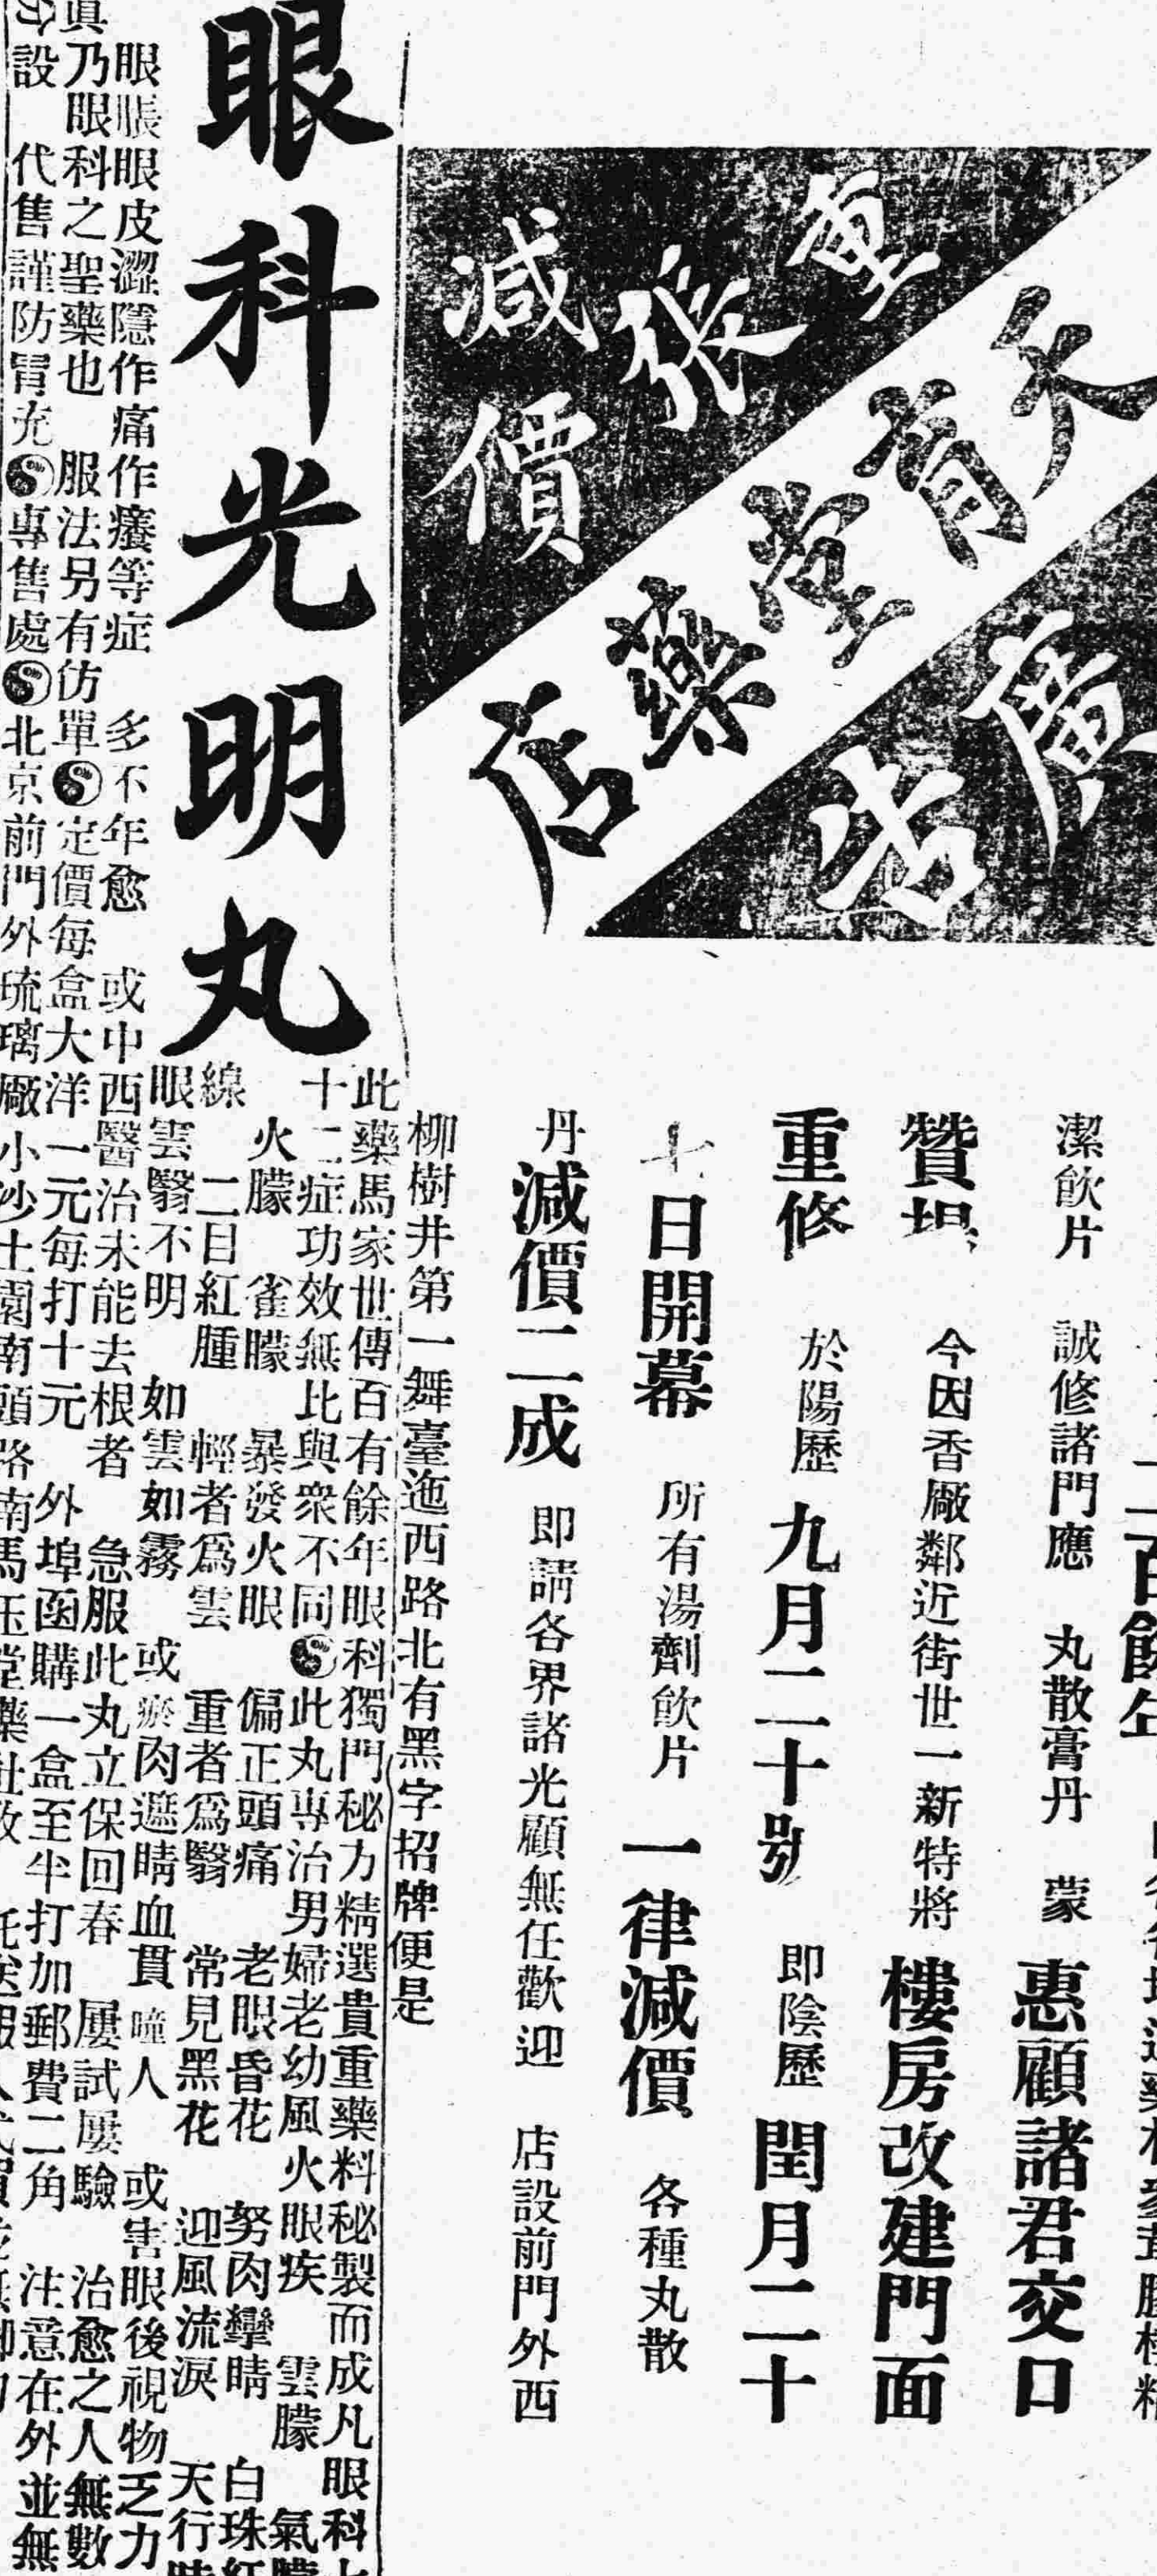 重張
減價
育堂藥店
廣告
二百餘年
潔飲片 誠修諸門應 丸散膏丹 蒙 惠顧諸君交口
贊 今因香廠鄰近街世一新特將 樓房改建門面
重修 於陽歷 九月二十號 即陰歷 閏月二十
七日開幕 所有湯劑飲片 一律減價 各種丸散
丹減價二成 即請各界諸光顧無任歡迎 店設前門外西
柳樹井第一舞臺迤西路北有黑字招牌便是
眼科光明丸
此藥馬家世傳百有餘年眼科獨門秘力精選貴重藥料秘製而成凡眼科七
十二症功效無比與衆不同此丸專治男婦老幼風火眼疾 雲朦 氣朦
火朦 雀朦 暴發火眼 偏正頭痛 老眼昏花 努肉攀睛 白珠紅
線 二目紅腫 輕者爲雲 重者爲翳 常見黑花 迎風流淚 天行時
眼雲翳不明 如雲如霧 或瘀肉遮睛血貫瞳人 或害眼後視物乏力
眼脹眼皮澀隱作痛作癢等症 多不年愈 或中西醫治未能去根者 急服此丸立保回春 屢試屢驗 治愈之人無數
眞乃眼科之聖藥也 服法另有仿單 定價每盒大洋一元每打十元 外埠函購一盒至半打加郵費二角 注意在外並無
設 代售謹防冒充 專售處 北京前門外琉璃廠小沙土園南頭路南馬玉堂藥社啟